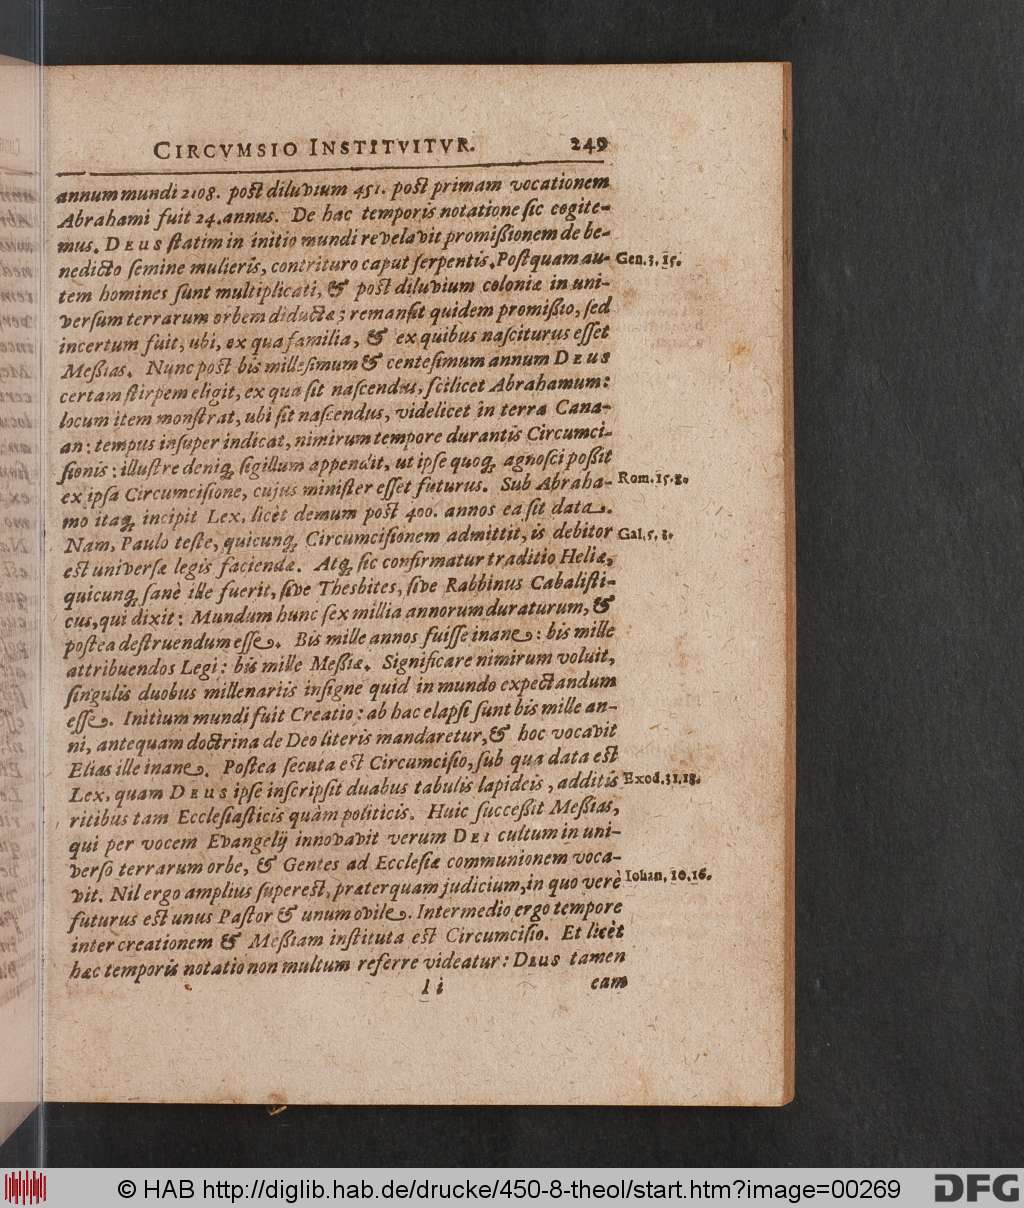 CIRCVMSIO INSTITVITVR. 249
annum mundi 2108. post diluvium 451. post primam vocationem
Abrahami fuit 24. annus. De hac temporis notatione sic cogite-
mus. DEUS statim in initio mundi revelavit promißionem de be-
nedicto semine mulieris, contrituro caput serpentis. Postquam au- Gen. 3. 15.
tem homines sunt multiplicati, & post diluvium coloniæ in uni-
versum terrarum orbem diductæ; remansit quidem promißio, sed
incertum fuit, ubi, ex qua familia, & ex quibus nasciturus esset
Meßias. Nunc post bis millesimum & centesimum annum DEUS
certam stirpem eligit, ex qua sit nascendus, scilicet Abrahamum:
locum item monstrat, ubi sit nascendus, videlicet in terra Cana-
an: tempus insuper indicat, nimirum tempore durantis Circumci-
sionis: illustre deniq; sigillum appendit, ut ipse quoq; agnosci poßit
ex ipsa Circumcisione, cujus minister esset futurus. Sub Abraha- Rom. 15. 8.
mo itaq; incipit Lex, licèt demum post 400. annos ea sit data.
Nam, Paulo teste, quicunq; Circumcisionem admittit, is debitor Gal. 5. 3.
est universæ legis faciendæ. Atq; sic confirmatur traditio Heliæ,
quicunq; sanè ille fuerit, sive Thesbites, sive Rabbinus Cabalisti-
cus, qui dixit: Mundum hunc sex millia annorum duraturum, &
postea destruendum esse. Bis mille annos fuisse inane: bis mille
attribuendos Legi: bis mille Meßiæ. Significare nimirum voluit,
singulis duobus millenariis insigne quid in mundo expectandum
esse. Initium mundi fuit Creatio: ab hac elapsi sunt bis mille an-
ni, antequam doctrina de Deo literis mandaretur, & hoc vocavit
Elias ille inane. Postea secuta est Circumcisio, sub qua data est
Lex, quam DEUS ipse inscripsit duabus tabulis lapideis, additis Exod. 31. 18.
ritibus tam Ecclesiasticis quàm politicis. Huic succeßit Meßias,
qui per vocem Evangelij innovavit verum DEI cultum in uni-
verso terrarum orbe, & Gentes ad Ecclesiæ communionem voca-
vit. Nil ergo amplius superest, præterquam judicium, in quo verè Iohan. 10. 16.
futurus est unus Pastor & unum ovile. Intermedio ergo tempore
inter creationem & Meßiam instituta est Circumcisio. Et licèt
hæc temporis notatio non multum referre videatur: DEUS tamen
I i eam
© HAB http://diglib.hab.de/drucke/450-8-theol/start.htm?image=00269 DFG